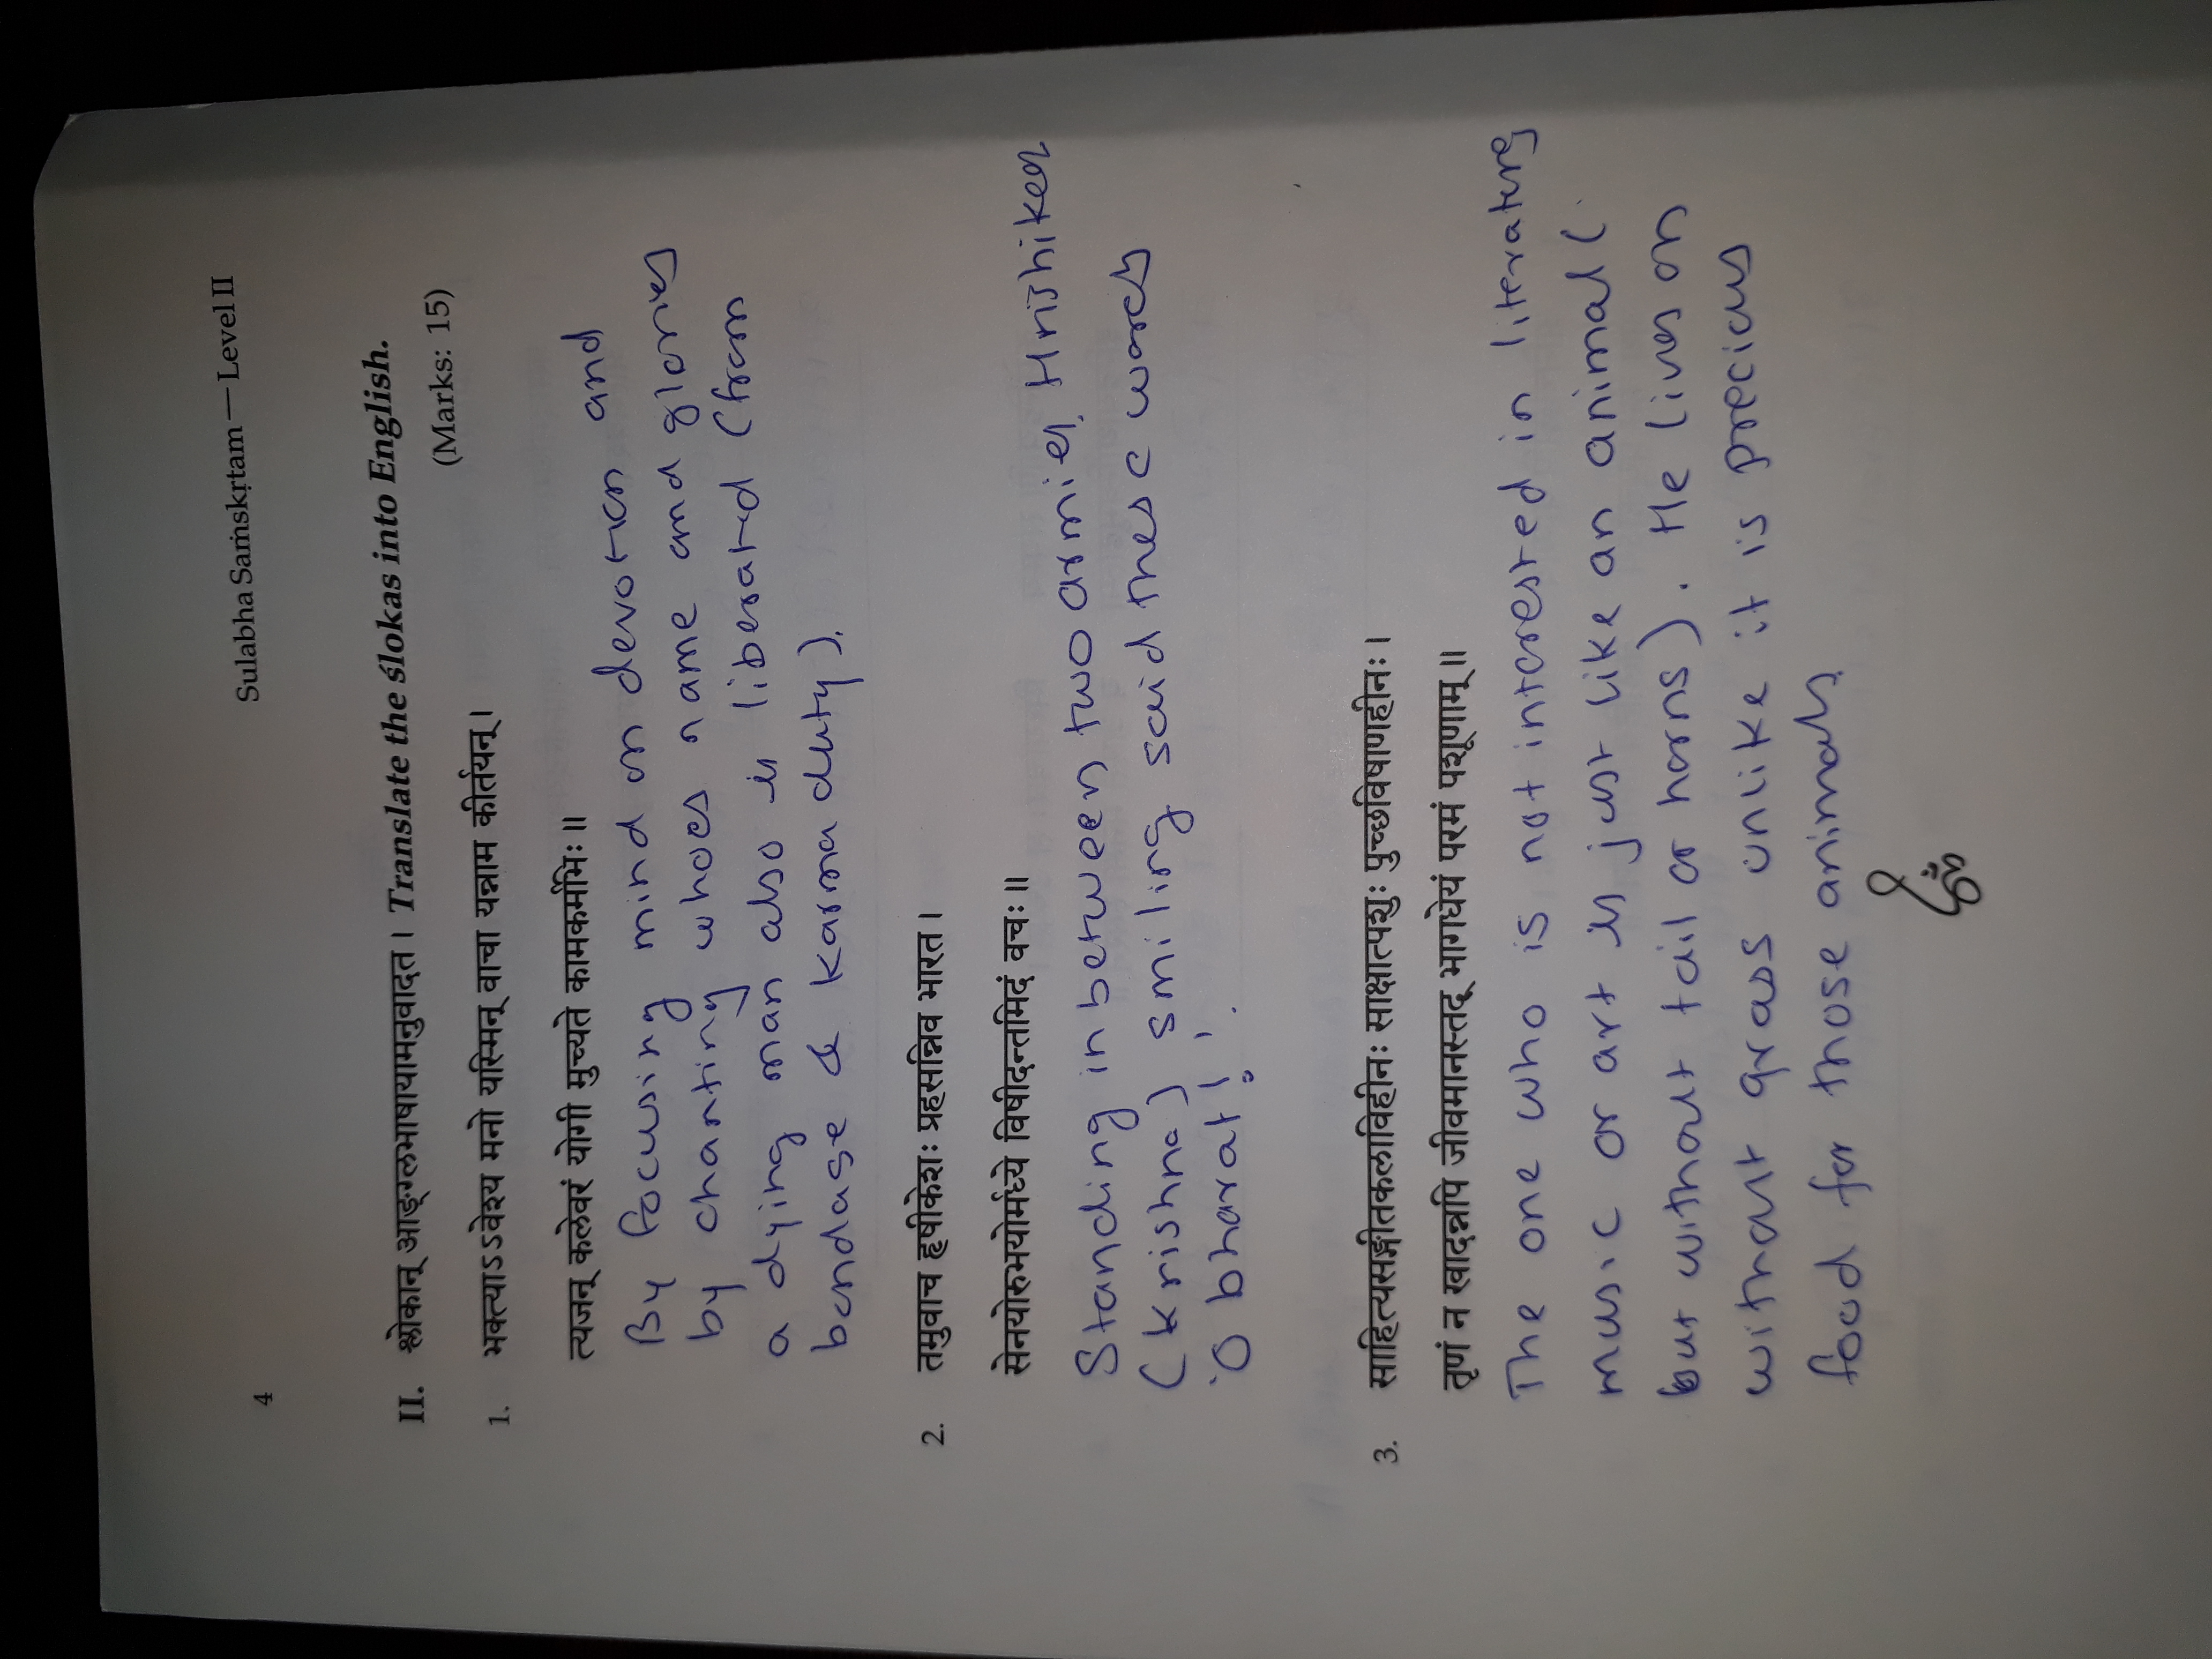 4
Sulabha Saṁskṛtam — Level II
II. श्लोकान् आङ्ग्लभाषायामनुवादत । Translate the ślokas into English.
(Marks: 15)
1. भक्त्याऽऽवेश्य मनो यस्मिन् वाचा यन्नाम कीर्तयन् ।
त्यजन् कलेवरं योगी मुच्यते कामकर्मभिः ॥
By focusing mind on devotion and
by chanting whoes name and glories
a dying man also is liberated (from
bondage & Karma duty).
2. तमुवाच हृषीकेशः प्रहसन्निव भारत ।
सेनयोरुभयोर्मध्ये विषीदन्तमिदं वचः ॥
Standing in between two armies, Hrishikesh
(Krishna) smiling said these words
'O bharat! '.
3. साहित्यसङ्गीतकलाविहीनः साक्षात्पशुः पुच्छविषाणहीनः ।
तृणं न खादन्नपि जीवमानस्तद् भागधेयं परमं पशूणाम् ॥
The one who is not interested in literature,
music or art is just like an animal (
but without tail or horns). He lives on
without grass unlike it is precious
food for those animals.
ॐ